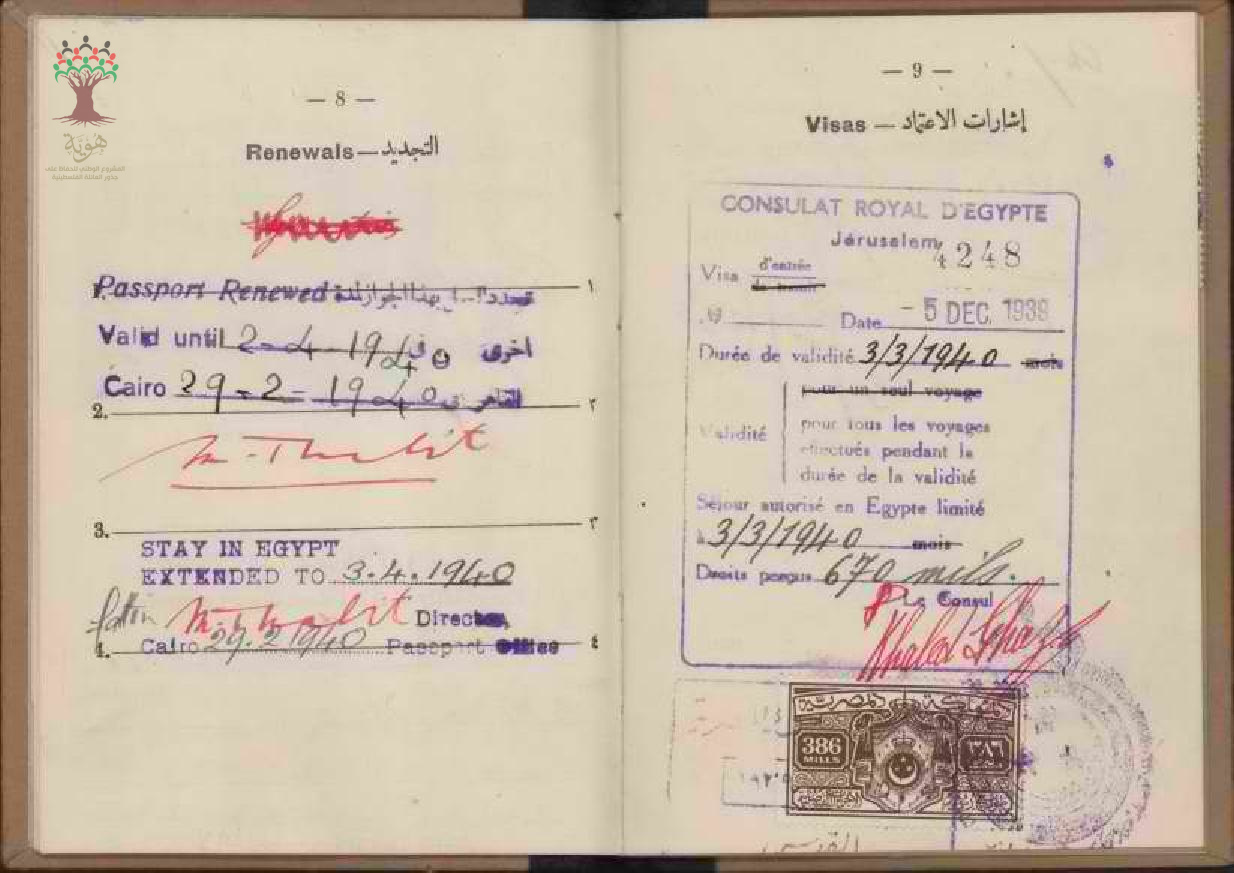 هُوِيَّة
المشروع الوطني للحفاظ على
جذور العائلة الفلسطينية
— 8 —
Renewals — التجديد
1. Passport Renewed ١
Valid until 2-4-194 في أخرى
Cairo 29-2-1940
2. ٢
M. Thabit
3. ٣
STAY IN EGYPT
EXTENDED TO 3.4.1940
M. Thabit Director
4. Cairo 29.2.1940 Passport Office ٤
— 9 —
Visas — إشارات الاعتماد
CONSULAT ROYAL D'EGYPTE
Jérusalem 4248
Visa d'entrée
Date - 5 DEC. 1939
Durée de validité 3/3/1940 mois
pour un seul voyage
Validité
pour tous les voyages
effectués pendant la
durée de la validité
Séjour autorisé en Egypte limité
à 3/3/1940 mois
Droits perçus 670 mils.
Le Consul
Khaled
المملكة المصرية
386
MILLS
٣٨٦
القدس